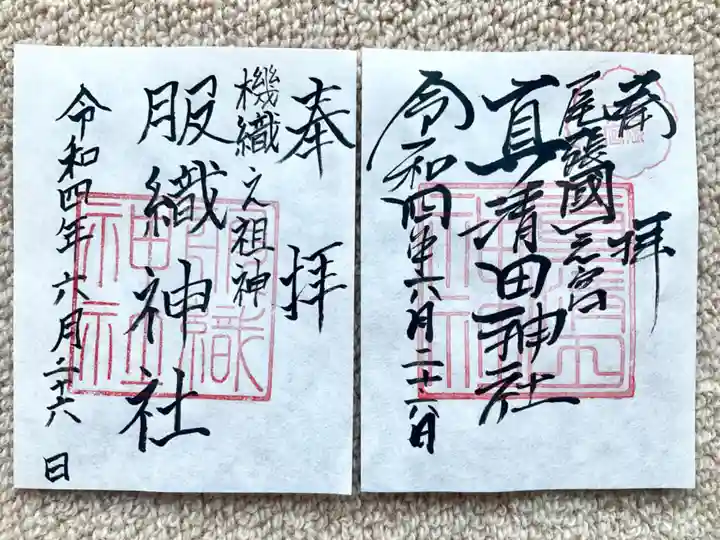 奉拝
尾張國一之宮
真清田神社
令和四年六月二十六日
奉拝
機織之祖神
服織神社
令和四年六月二十六日